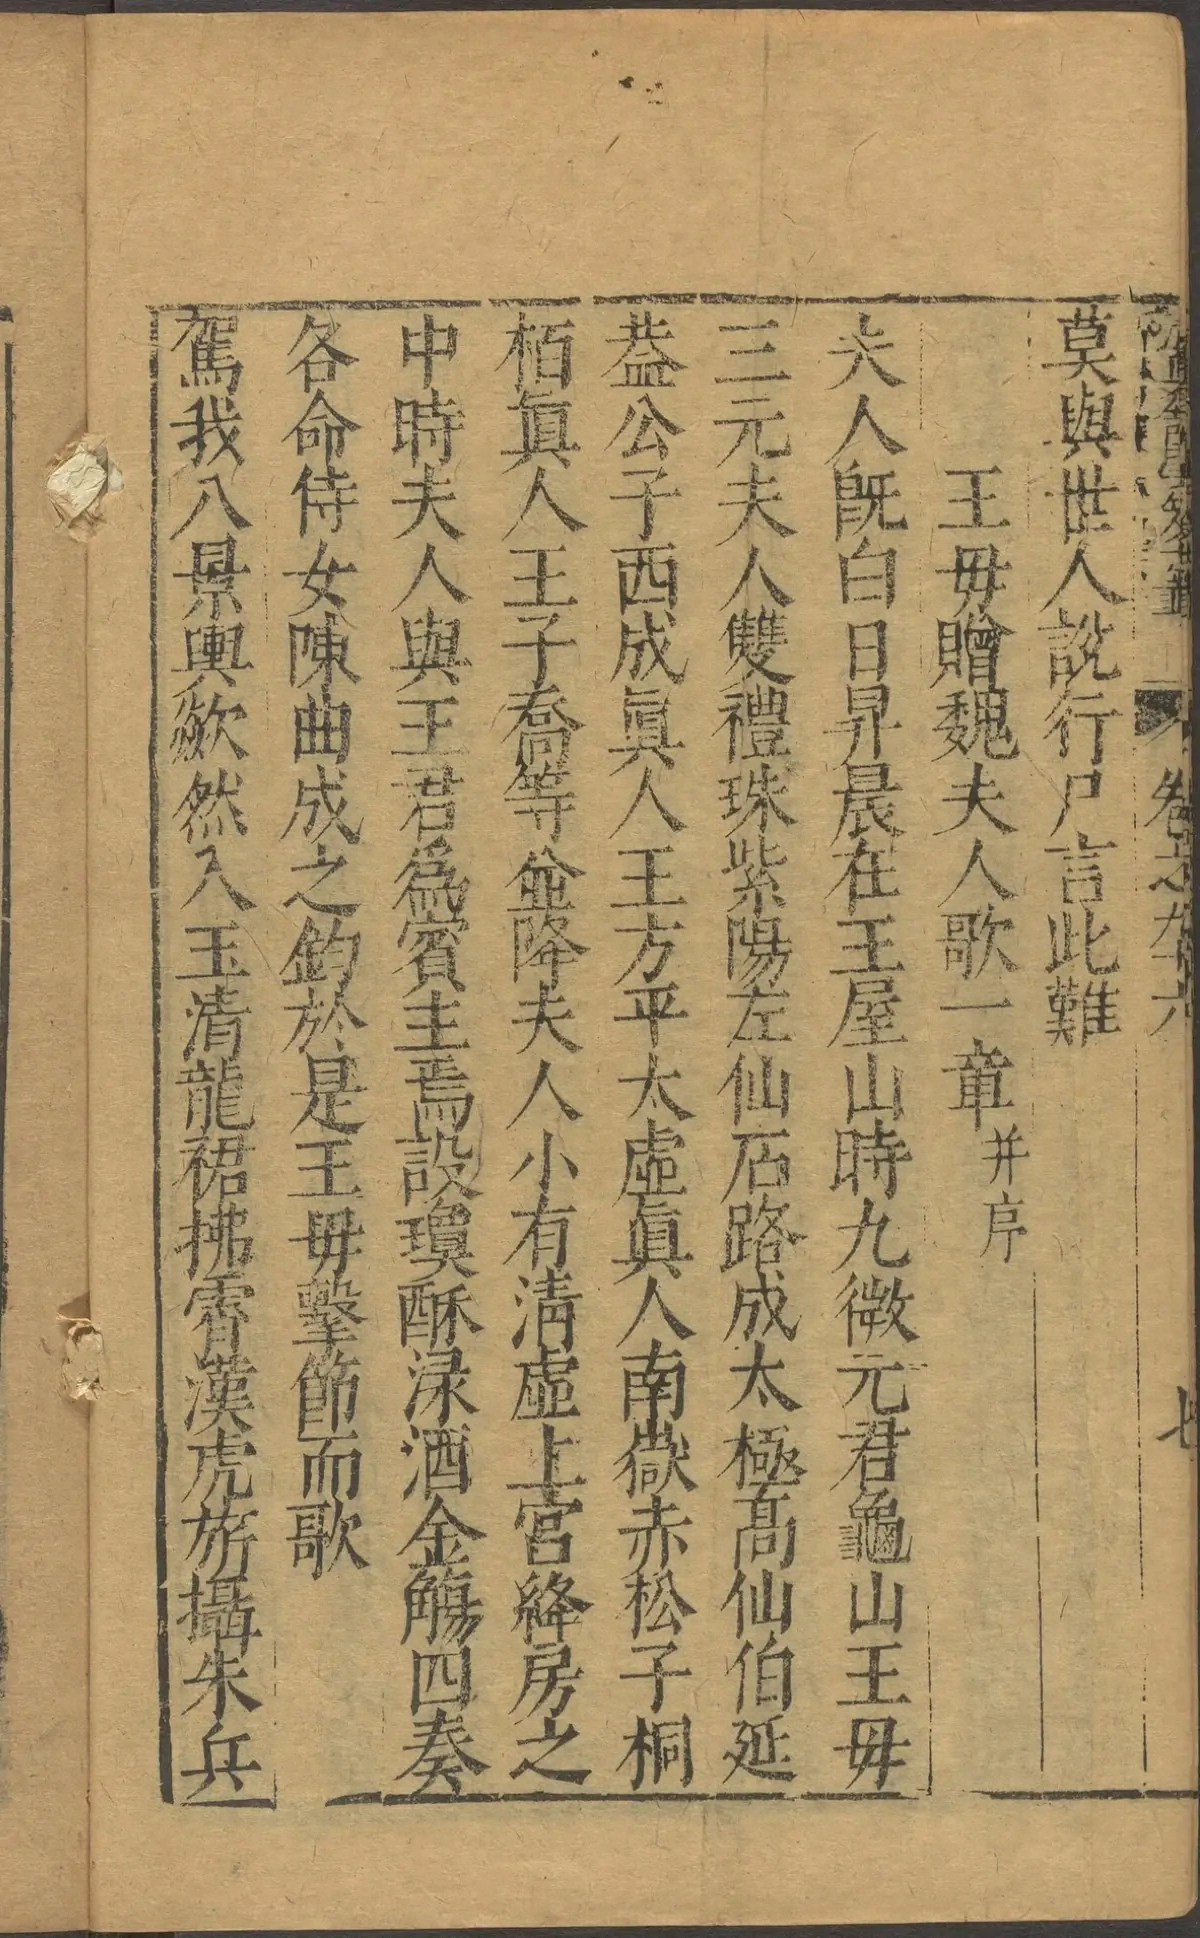 卷之九十六
七
莫與世人說行尸言此難
王毋贈魏夫人歌一章并序
夫人旣白日昇晨在王屋山時九微元君龜山王毋
三元夫人雙禮珠紫陽左仙石路成太極髙仙伯延
葢公子西成眞人王方平太虛眞人南嶽赤松子桐
栢眞人王子喬等並降夫人小有清虛上宮絳房之
中時夫人與王君爲賓主焉設瓊酥渌酒金觴四奏
各命侍女陳曲成之鈞於是王毋擊節而歌
駕我八景輿欻然入玉清龍裙拂霄漢虎旂攝朱兵